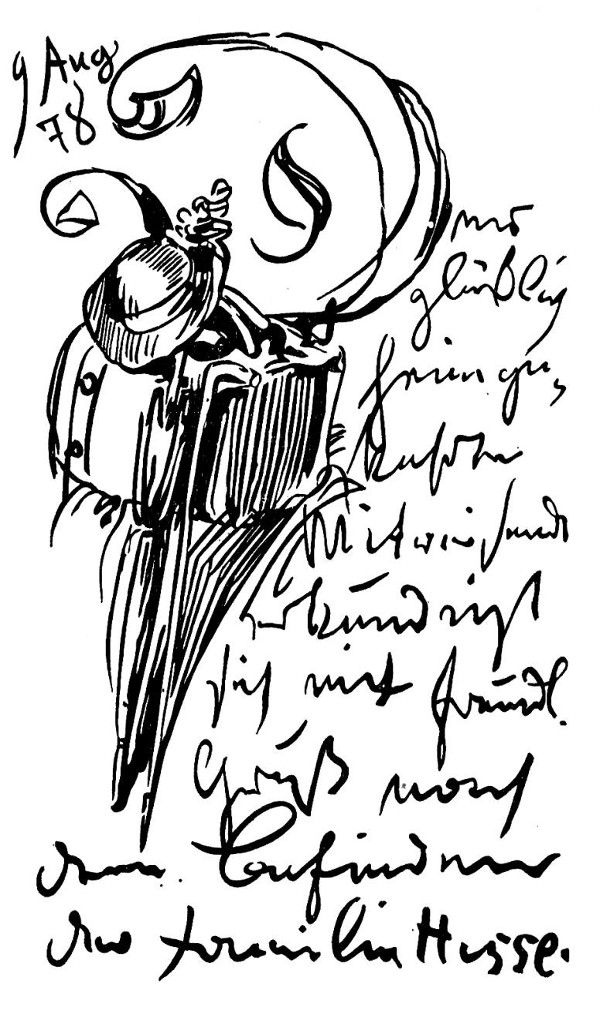 9 Aug
78
glücklich
heimge-
kehrte
Mitreisende
erkundigt
sich mit freundl.
Gruß nach
dem Befinden
der Familie Hesse.